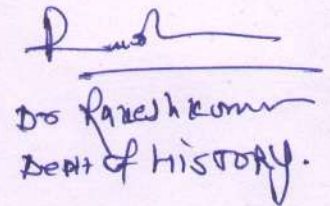 Dr Rakesh Kumar
Deptt of HISTORY.